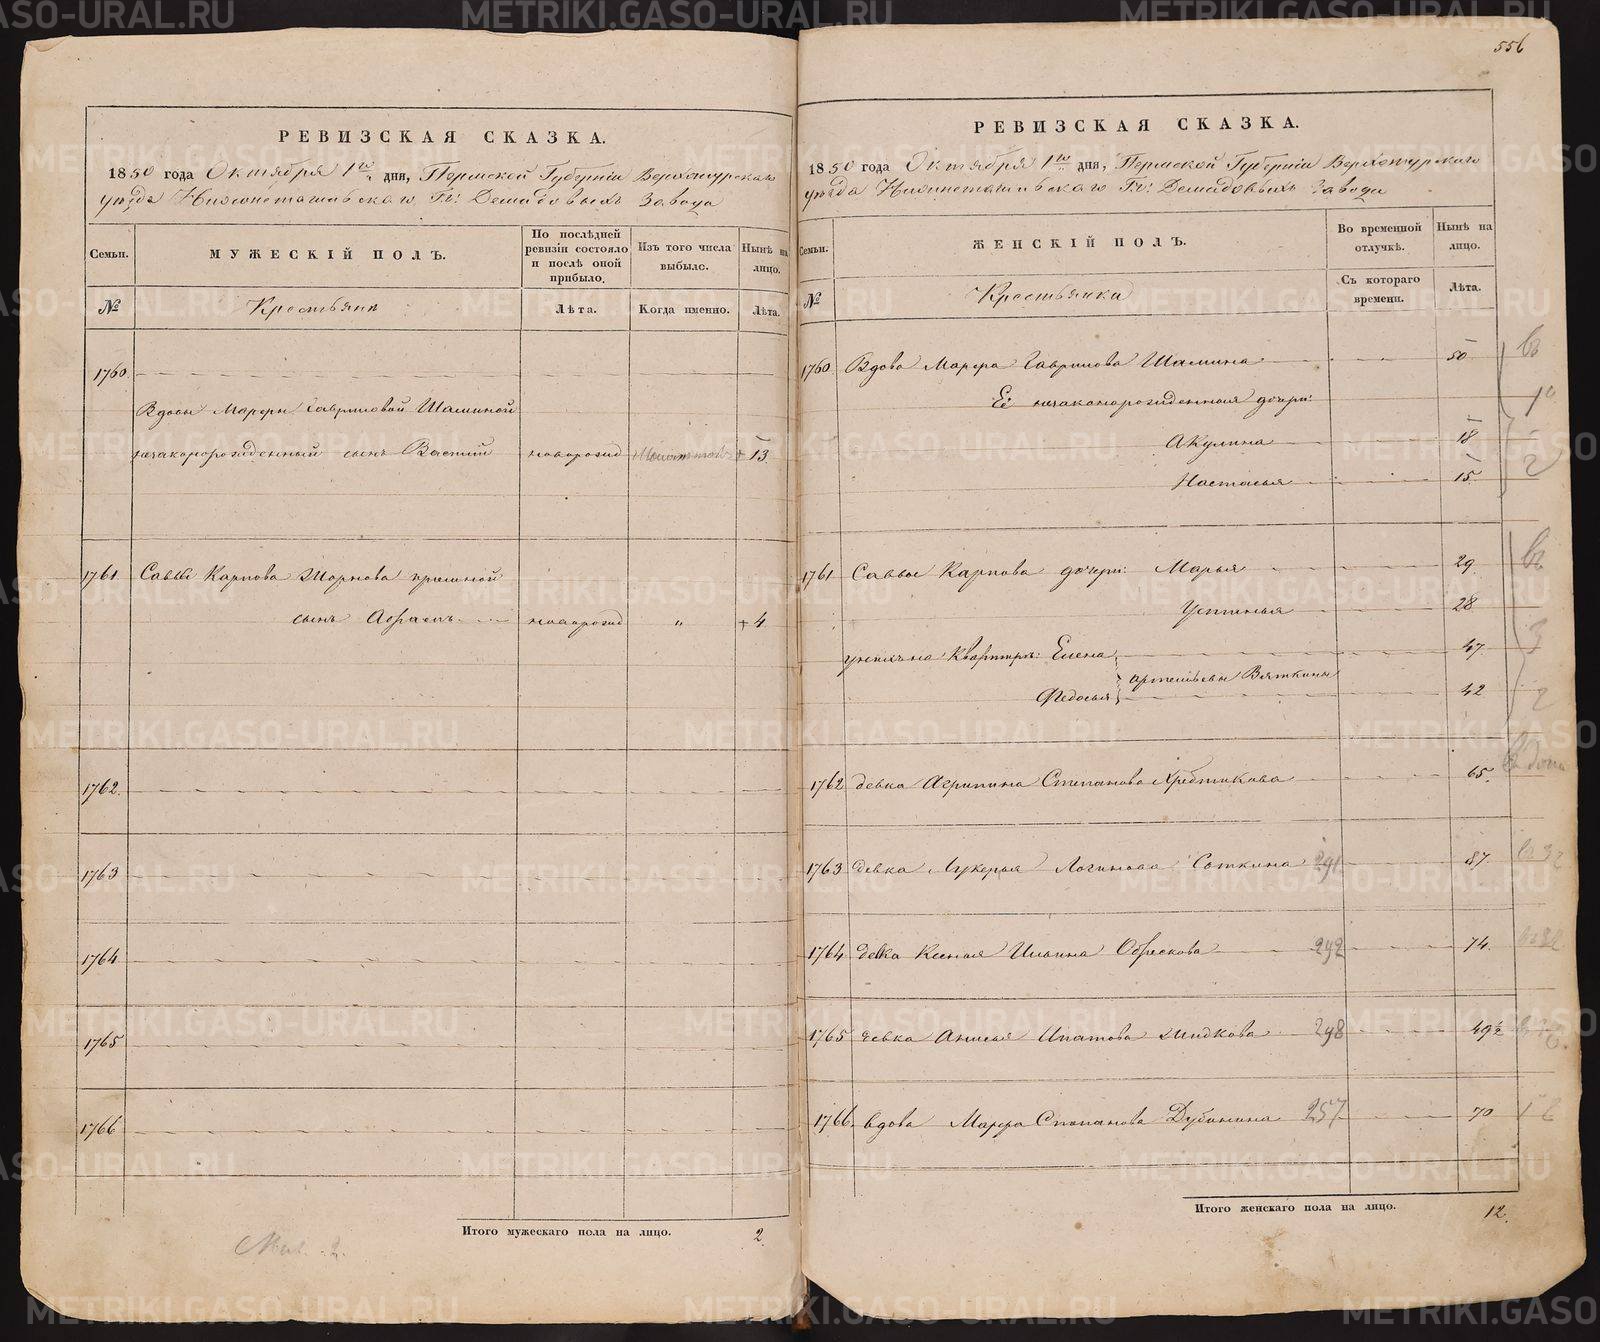 556
РЕВИЗСКАЯ СКАЗКА.
1850 года Октября 1го дня, Пермской Губерніи Верхотурскаго
уѣзда Нижнетагильскаго Гг: Демидовыхъ Завода
Семьи.
МУЖЕСКІЙ ПОЛЪ.
По послѣдней ревизіи состояло и послѣ оной прибыло.
Изъ того числа выбыло.
Нынѣ на лицо.
№
Крестьяне
Лѣта.
Когда именно.
Лѣта.
1760.
Вдовы Марфы Гавриловой Шаминой
незаконорожденный сынъ Василий новорожд 13.
1761. Саввы Карпова приемной
сынъ Абрамъ новорожд " 4.
1762.
1763
1764
1765
1766
Итого мужескаго пола на лицо. 2.
РЕВИЗСКАЯ СКАЗКА.
1850 года Октября 1го дня, Пермской Губерніи Верхотурскаго
уѣзда Нижнетагильскаго Гг: Демидовыхъ Завода
Семьи.
ЖЕНСКІЙ ПОЛЪ.
Во временной отлучкѣ.
Нынѣ на лицо.
№
Крестьянки
Съ котораго времени.
Лѣта.
1760 Вдова Марфа Гаврилова Шамина 50
Её незаконорожденныя дочери:
Акулина 18
Настасья 15.
1761 Саввы Карпова дочери: Марья 29.
Устинья 28
Елена 47.
Федосья Вяткины 42
1762 девка Агрипина Степанова 65.
1763 девка Лукерья Логинова Соткина 291 87.
1764 девка Ксенья Ильина Обрескова 292 74.
1765 девка Анисья Ипатова 298 49½
1766. вдова Марфа Степанова Дубинина 257 70
Итого женскаго пола на лицо. 12.
METRIKI.GASO-URAL.RU